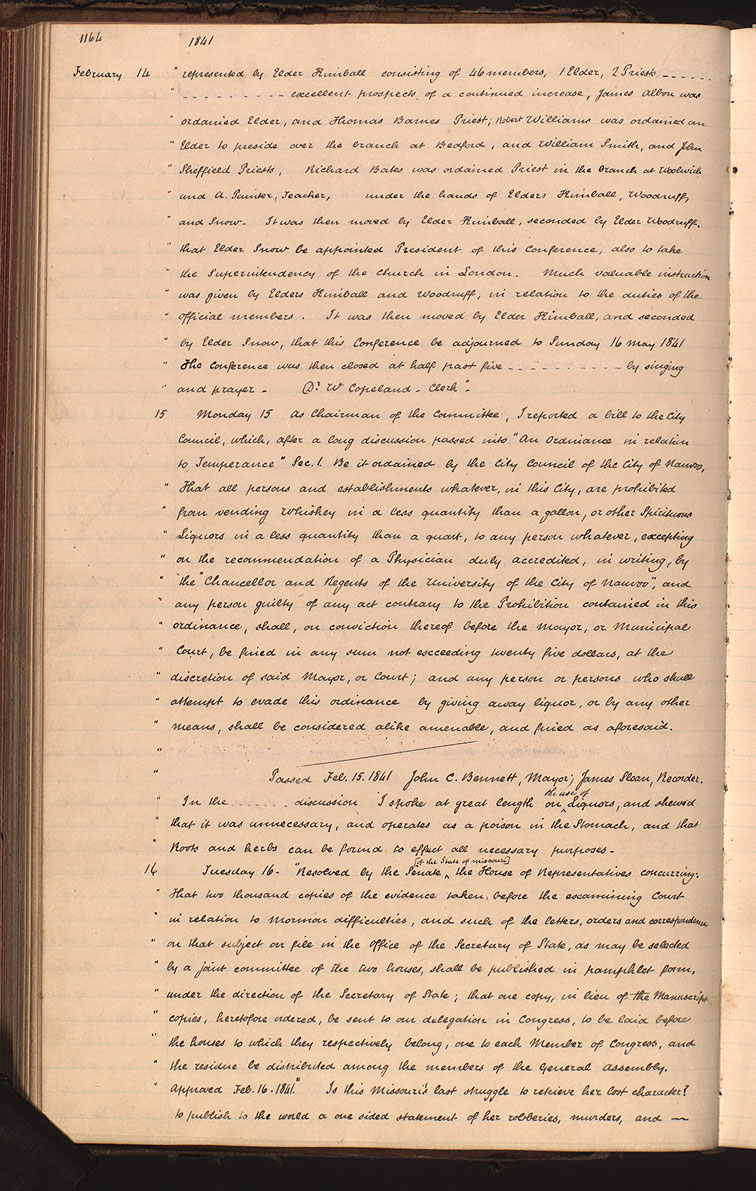 1164 1841
February 14 " represented by Elder Kimball consisting of 46 members, 1 Elder, 2 Priests - - - - -
" - - - - - - - - excellent prospects of a continued increase, James Albon was
" ordained Elder, and Thomas Barnes Priest; Robert Williams was ordained an
" Elder to preside over the branch at Bedford, and William Smith, and John
" Sheffield Priests, Richard Bates was ordained Priest in the branch at Woolwich
" and A. Painter, Teacher, under the hands of Elders Kimball, Woodruff,
" and Snow - It was then moved by Elder Kimball, seconded by Elder Woodruff,
" that Elder Snow be appointed President of this Conference, also to take
" the Superintendency of the Church in London. Much valuable instruction
" was given by Elders Kimball and Woodruff, in relation to the duties of the
" official members. It was then moved by Elder Kimball, and seconded
" by Elder Snow, that this Conference be adjourned to Sunday 16 May 1841
" The Conference was then closed at half past five - - - - - - - - by singing
" and prayer - Dr. W Copeland - Clerk" -
15 Monday 15 As Chairman of the Committee, I reported a bill to the City
Council, which, after a long discussion passed into "An Ordinance in relation
to Temperance" Sec. 1. Be it ordained by the City Council of the City of Nauvoo,
" That all persons and establishments whatever, in this City, are prohibited
" from vending Whiskey in a less quantity than a gallon, or other Spirituous
" Liquors in a less quantity than a quart, to any person whatever, excepting
" on the recommendation of a Physician duly accredited, in writing, by
" the "Chancellor and Regents of the University of the City of Nauvoo", and
" any person guilty of any act contrary to the Prohibition contained in this
" ordinance, shall, on conviction thereof before the Mayor, or Municipal
" Court, be fined in any sum not exceeding twenty five dollars, at the
" discretion of said Mayor, or Court; and any person or persons who shall
" attempt to evade this ordinance by giving away liquor, or by any other
" means, shall be considered alike amenable, and fined as aforesaid.
"
" Passed Feb. 15. 1841 John C. Bennett, Mayor; James Sloan, Recorder.
" In the - - - - - - discussion I spoke at great length on the use of Liquors, and shewed
" that it was unnecessary, and operates as a poison in the Stomach, and that
" Roots and herbs can be found to effect all necessary purposes -
16 Tuesday 16 - "Resolved by the Senate [of the State of Missouri] the House of Representatives concurring:
" That two thousand copies of the evidence taken before the examining Court
" in relation to Mormon difficulties, and such of the letters, orders and correspondence
" on that subject on file in the Office of the Secretary of State, as may be selected
" by a joint committee of the two houses, shall be published in pamphlet form,
" under the direction of the Secretary of State; that one copy, in lieu of the Manuscript
" copies, heretofore ordered, be sent to our delegation in Congress, to be laid before
" the houses to which they respectively belong, one to each Member of Congress, and
" the residue be distributed among the members of the General Assembly.
" Approved Feb. 16. 1841." Is this Missouri's last struggle to retrieve her lost character?
" to publish to the world a one sided statement of her robberies, murders, and —